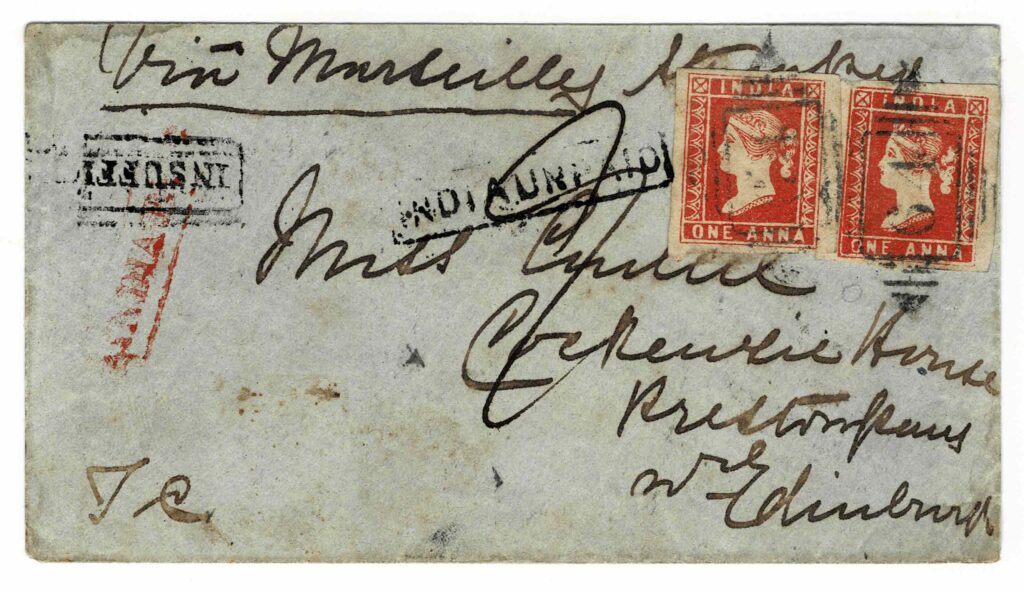 Via Marseilles Stamped.
INDIA
ONE ANNA
INDIA
ONE ANNA
INSUFFI
INDIA UNPAID
INDIA
Miss Cadell
Cockenzie House
Prestonpans
Nr Edinburgh
T C